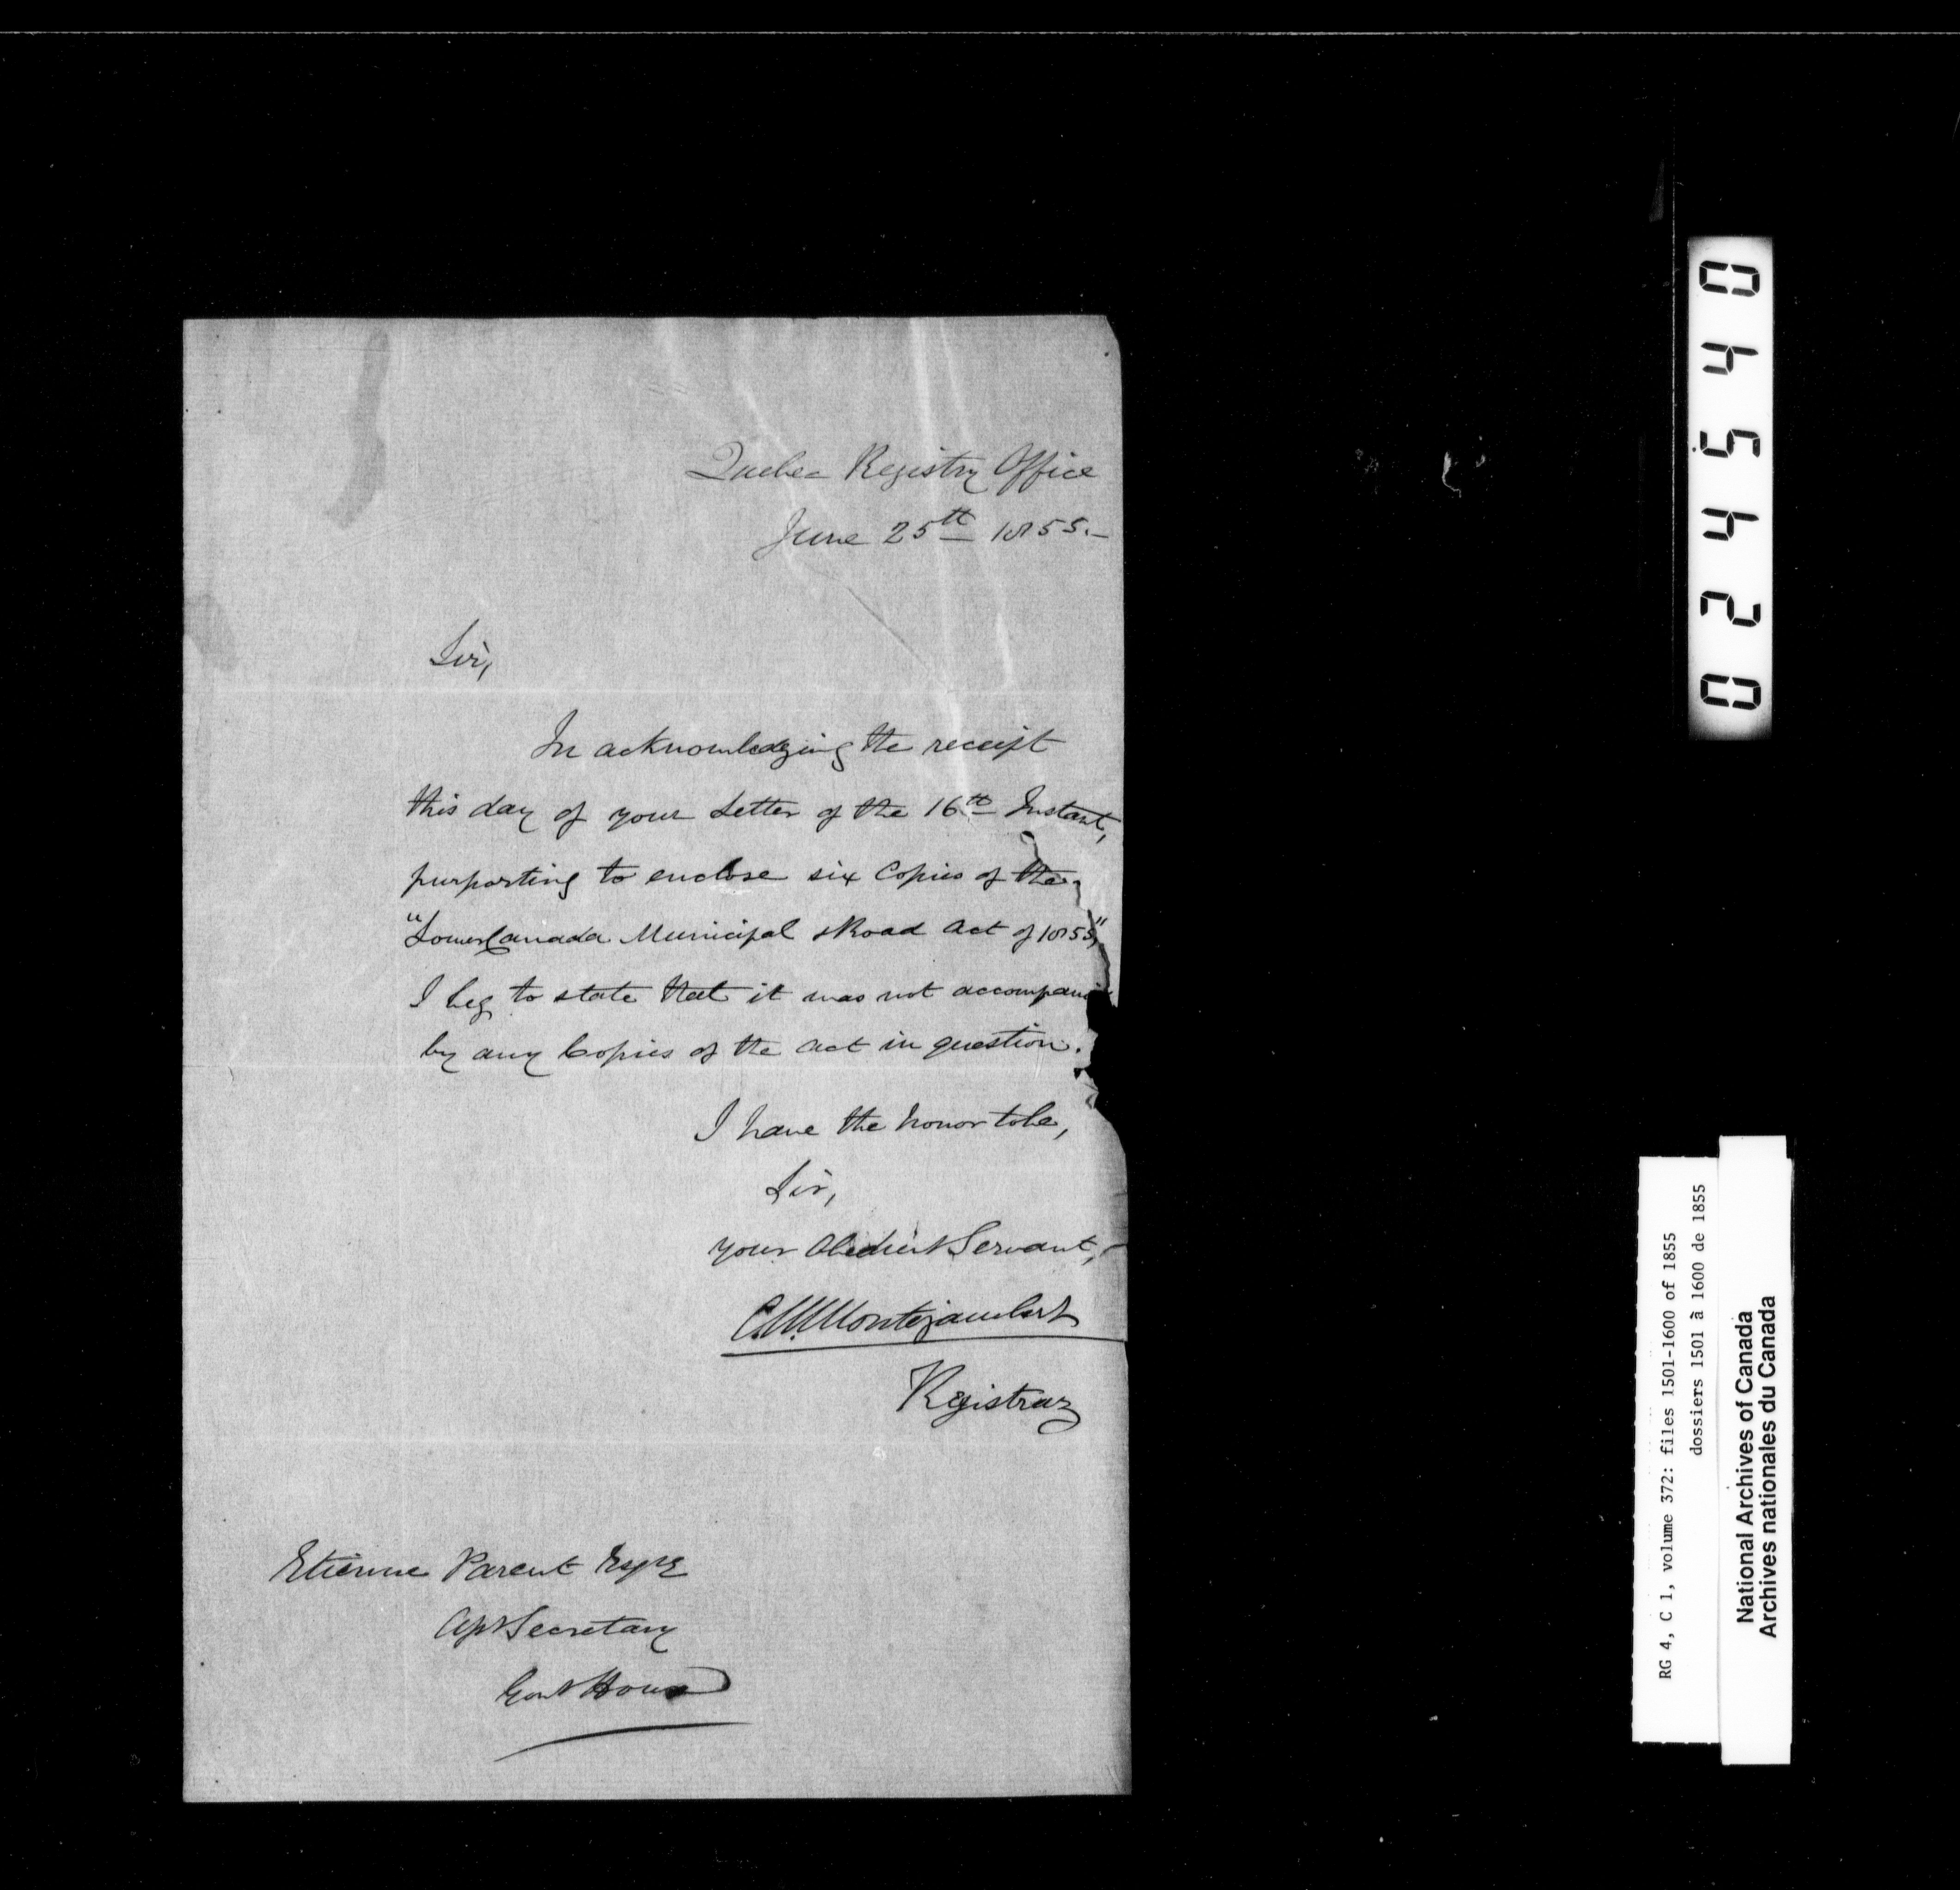 Quebec Registry Office
June 25th 1855.–
Sir,
In acknowledging the receipt
this day of your Letter of the 16th Instant,
purporting to enclose six Copies of the
"Lower Canada Municipal & Road Act of 1855,"
I beg to state that it was not accompani
by any Copies of the act in question.
I have the honor to be,
Sir,
your Obedient Servant,
C. Montizambert
Registrar
Etienne Parent Esqre
Asst Secretary
Govt House
024540
RG 4, C 1, volume 372: files 1501-1600 of 1855
dossiers 1501 à 1600 de 1855
National Archives of Canada
Archives nationales du Canada